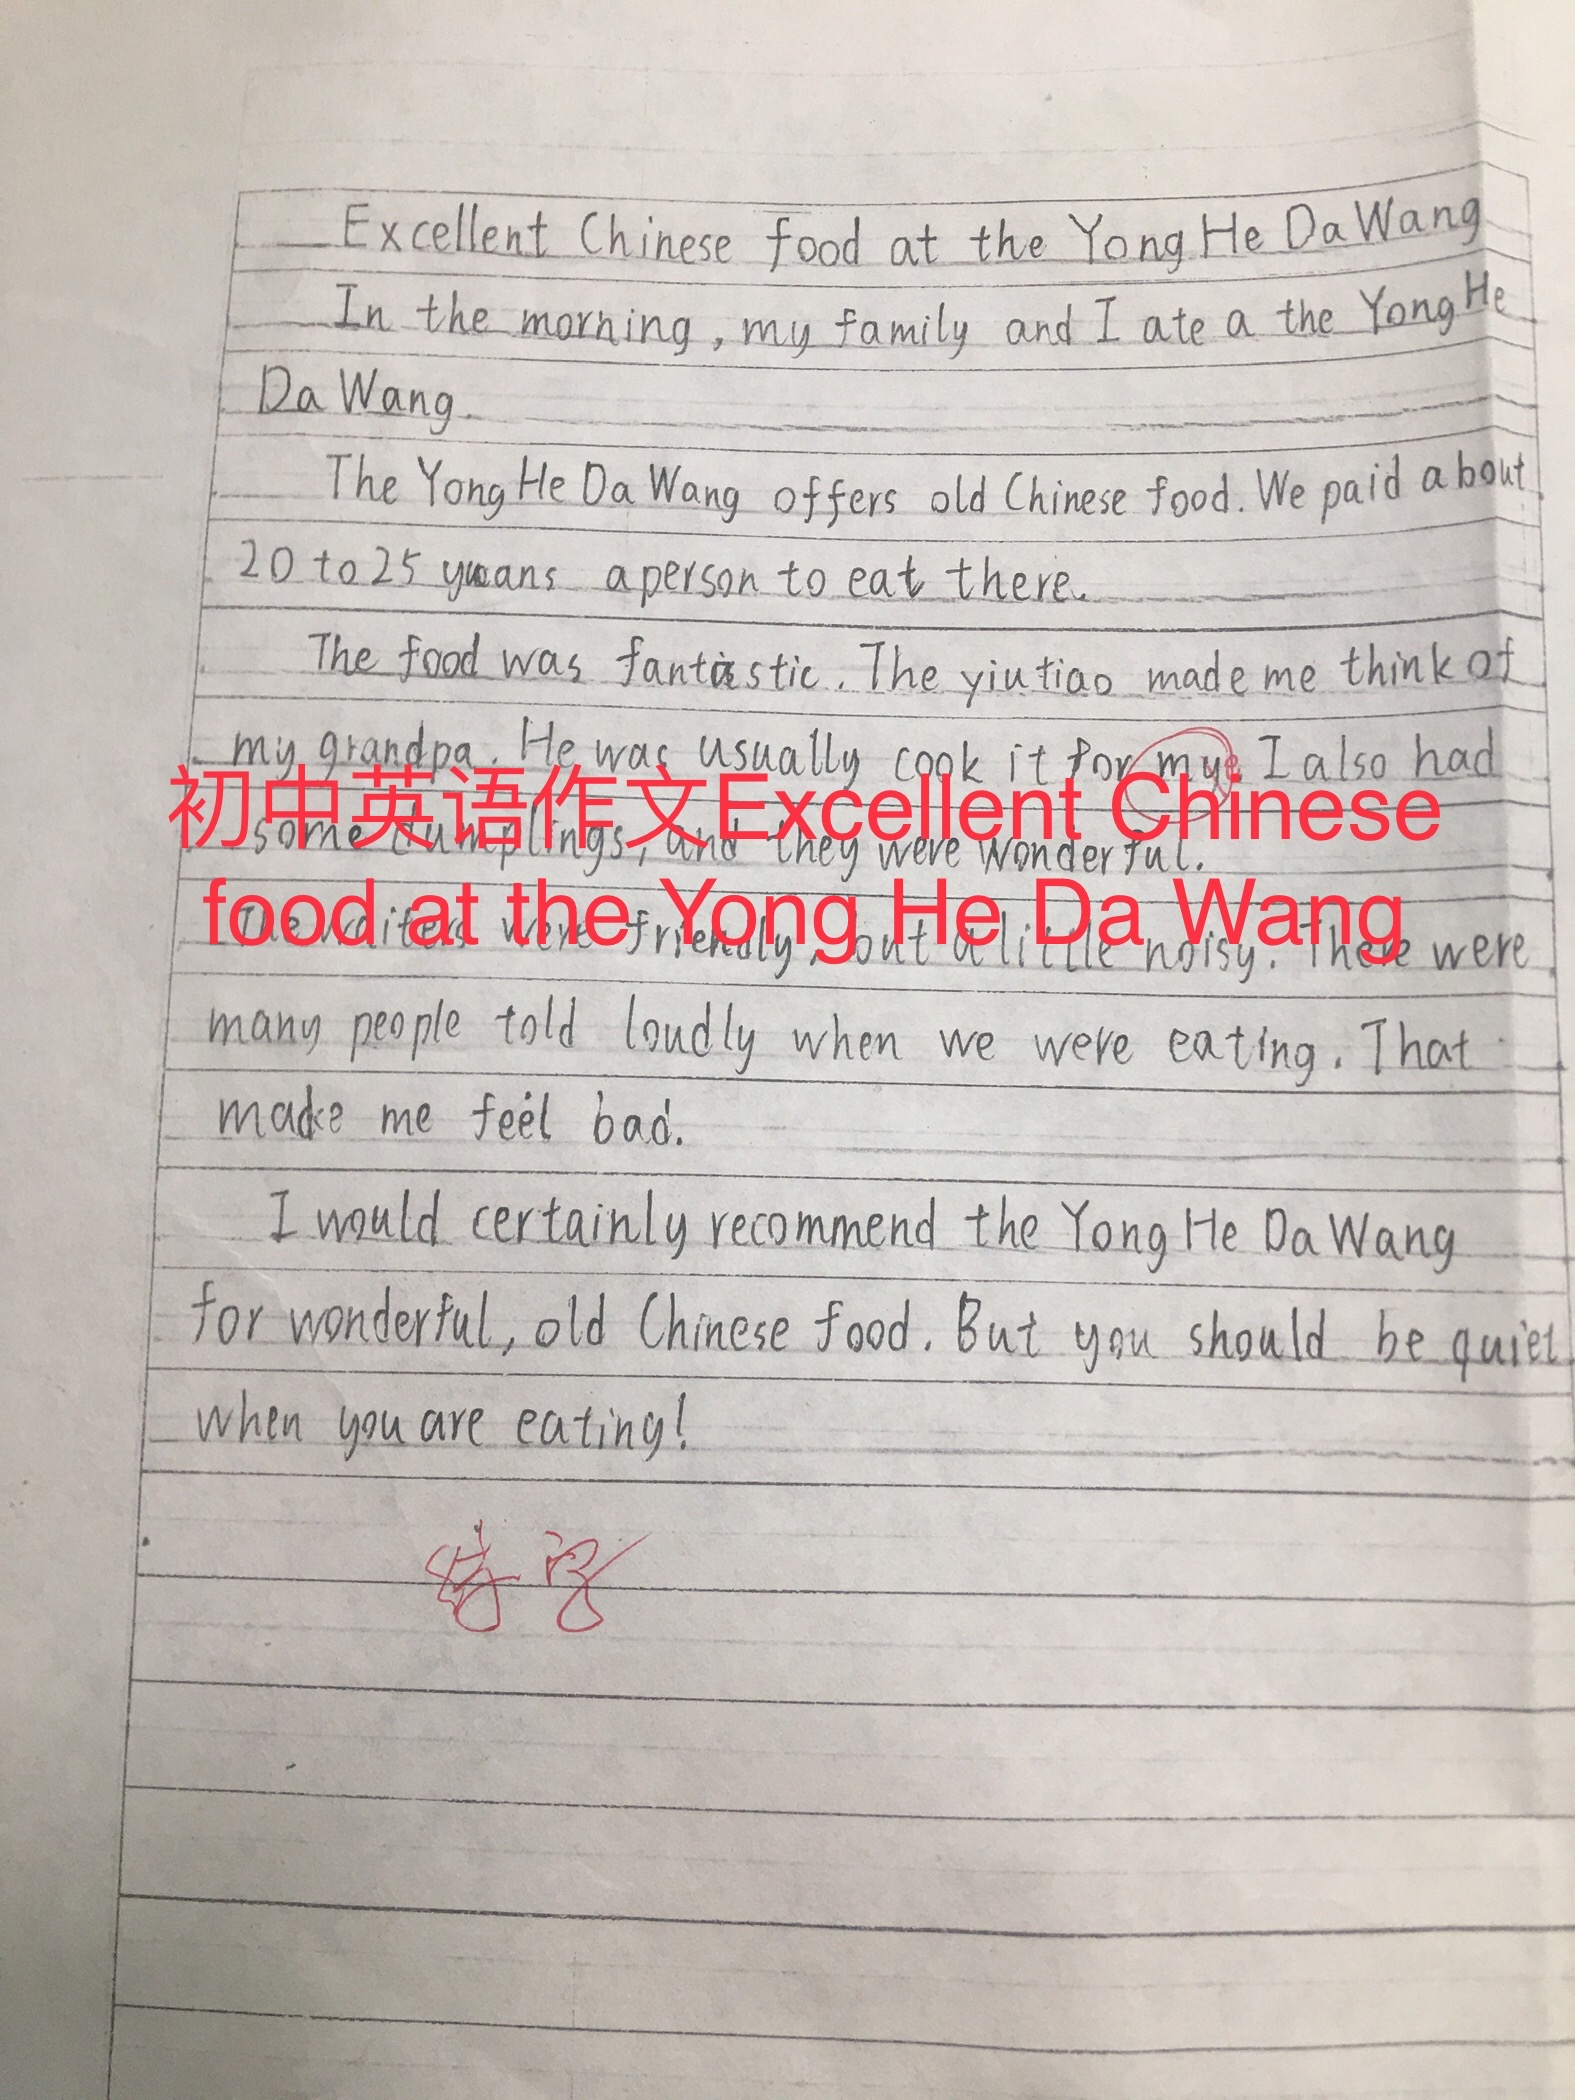 Excellent Chinese food at the Yong He Da Wang
In the morning, my family and I ate a the Yong He
Da Wang.
The Yong He Da Wang offers old Chinese food. We paid about
20 to 25 yuans a person to eat there.
The food was fantastic. The yiutiao made me think of
my grandpa. He was usually cook it for mye I also had
初中英语作文Excellent Chinese
some dumplings, and they were wonderful.
food at the Yong He Da Wang
The waiters were friendly, but a little noisy. There were
many people told loudly when we were eating. That
make me feel bad.
I would certainly recommend the Yong He Da Wang
for wonderful, old Chinese food. But you should be quiet
when you are eating!